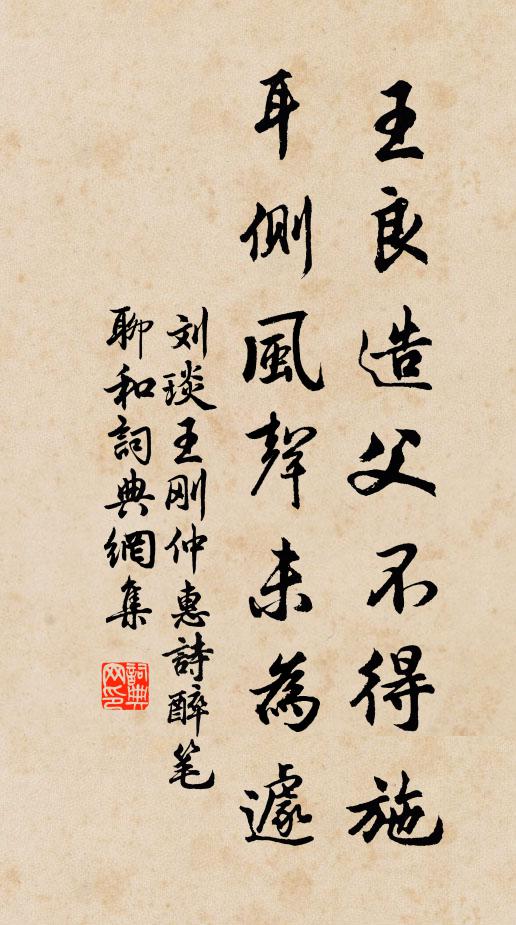 王良造父不得施
耳側風聲未為遽
刘琰王刚仲惠詩醉笔
聊和詞典網集
詞典网印